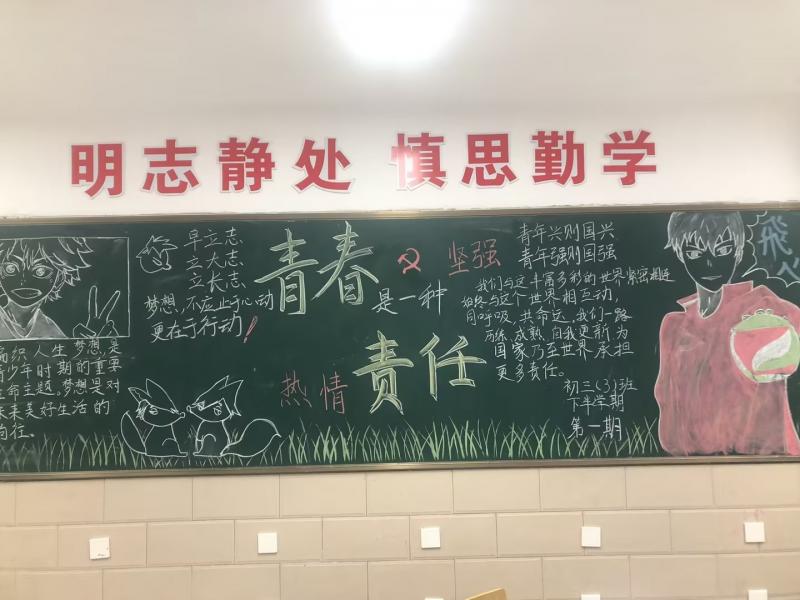 明志静处 慎思勤学
早立志
立大志
立长志
梦想,不应止于心动
更在于行动!
编织人生梦想,是
青少年时期的重要
生命主题。梦想是对
未来美好生活的
向往。
青春
是一种
责任
坚强
热情
青年兴则国兴
青年强则国强
我们与这丰富多彩的世界紧密相连
始终与这个世界相互动,
同呼吸,共命运。我们一路
历练,成熟,自我更新,为
国家乃至世界承担
更多责任。
初三(3)班
下半学期
第一期
飛べ